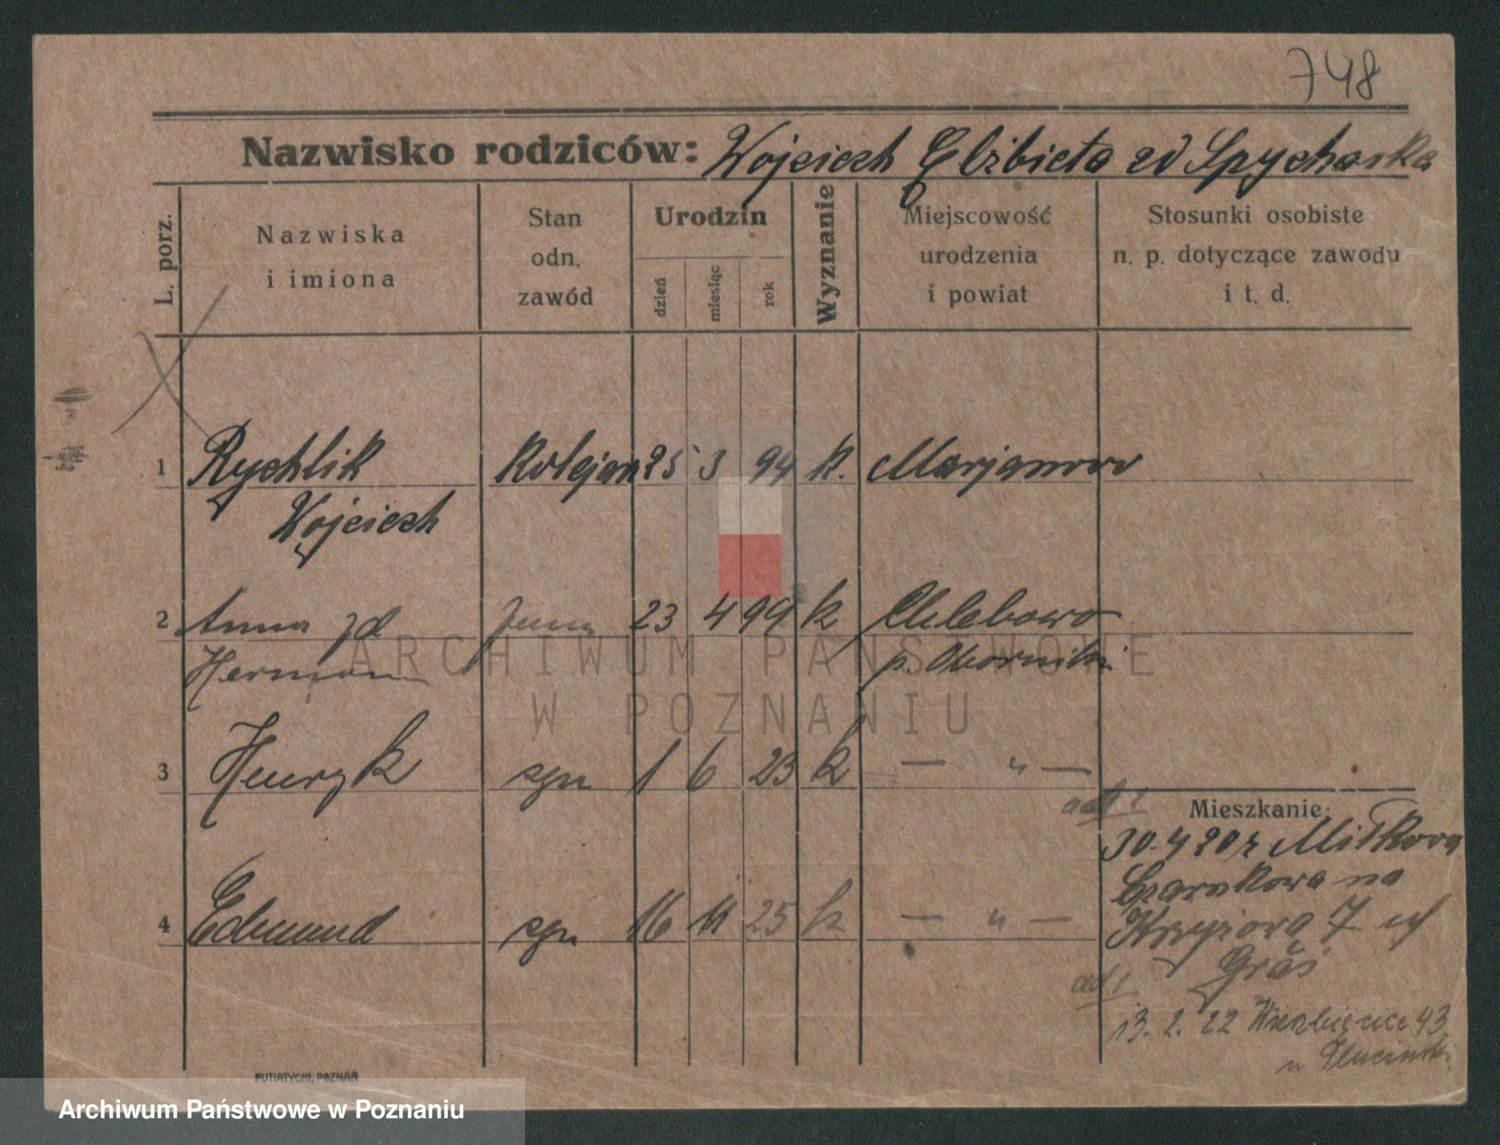 748
Nazwisko rodziców: Wojciech Elżbieta zd Spychalska
L. porz.
Nazwiska
i imiona
Stan
odn.
zawód
Urodzin
dzień
miesiąc
rok
Wyznanie
Miejscowość
urodzenia
i powiat
Stosunki osobiste
n. p. dotyczące zawodu
i t. d.
1 Rychlik Kolejarz 25 3 94 k. Marjanowo
Wojciech
2 Anna zd żona 23 4 99 k Chlebowo
Herman p. Oborniki
3 Henryk syn 1 6 23 k — „ —
ad 1
Mieszkanie:
30.4 20 r Miłkowo
Czarnkowa na
4 Edmund syn 16 11 25 k — „ —
7
ad 1
13. 2. 22 Wierzbięcice 43
u
PUTIATYCKI, POZNAŃ
ARCHIWUM PAŃSTWOWE
W POZNANIU
Archiwum Państwowe w Poznaniu